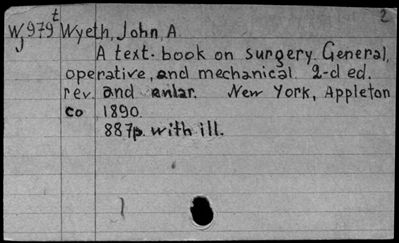 2
Wj979t Wyeth, John, A
A text-book on surgery. General,
operative, and mechanical. 2-d ed.
rev. and enlar. New York, Appleton
co 1890.
887p. with ill.